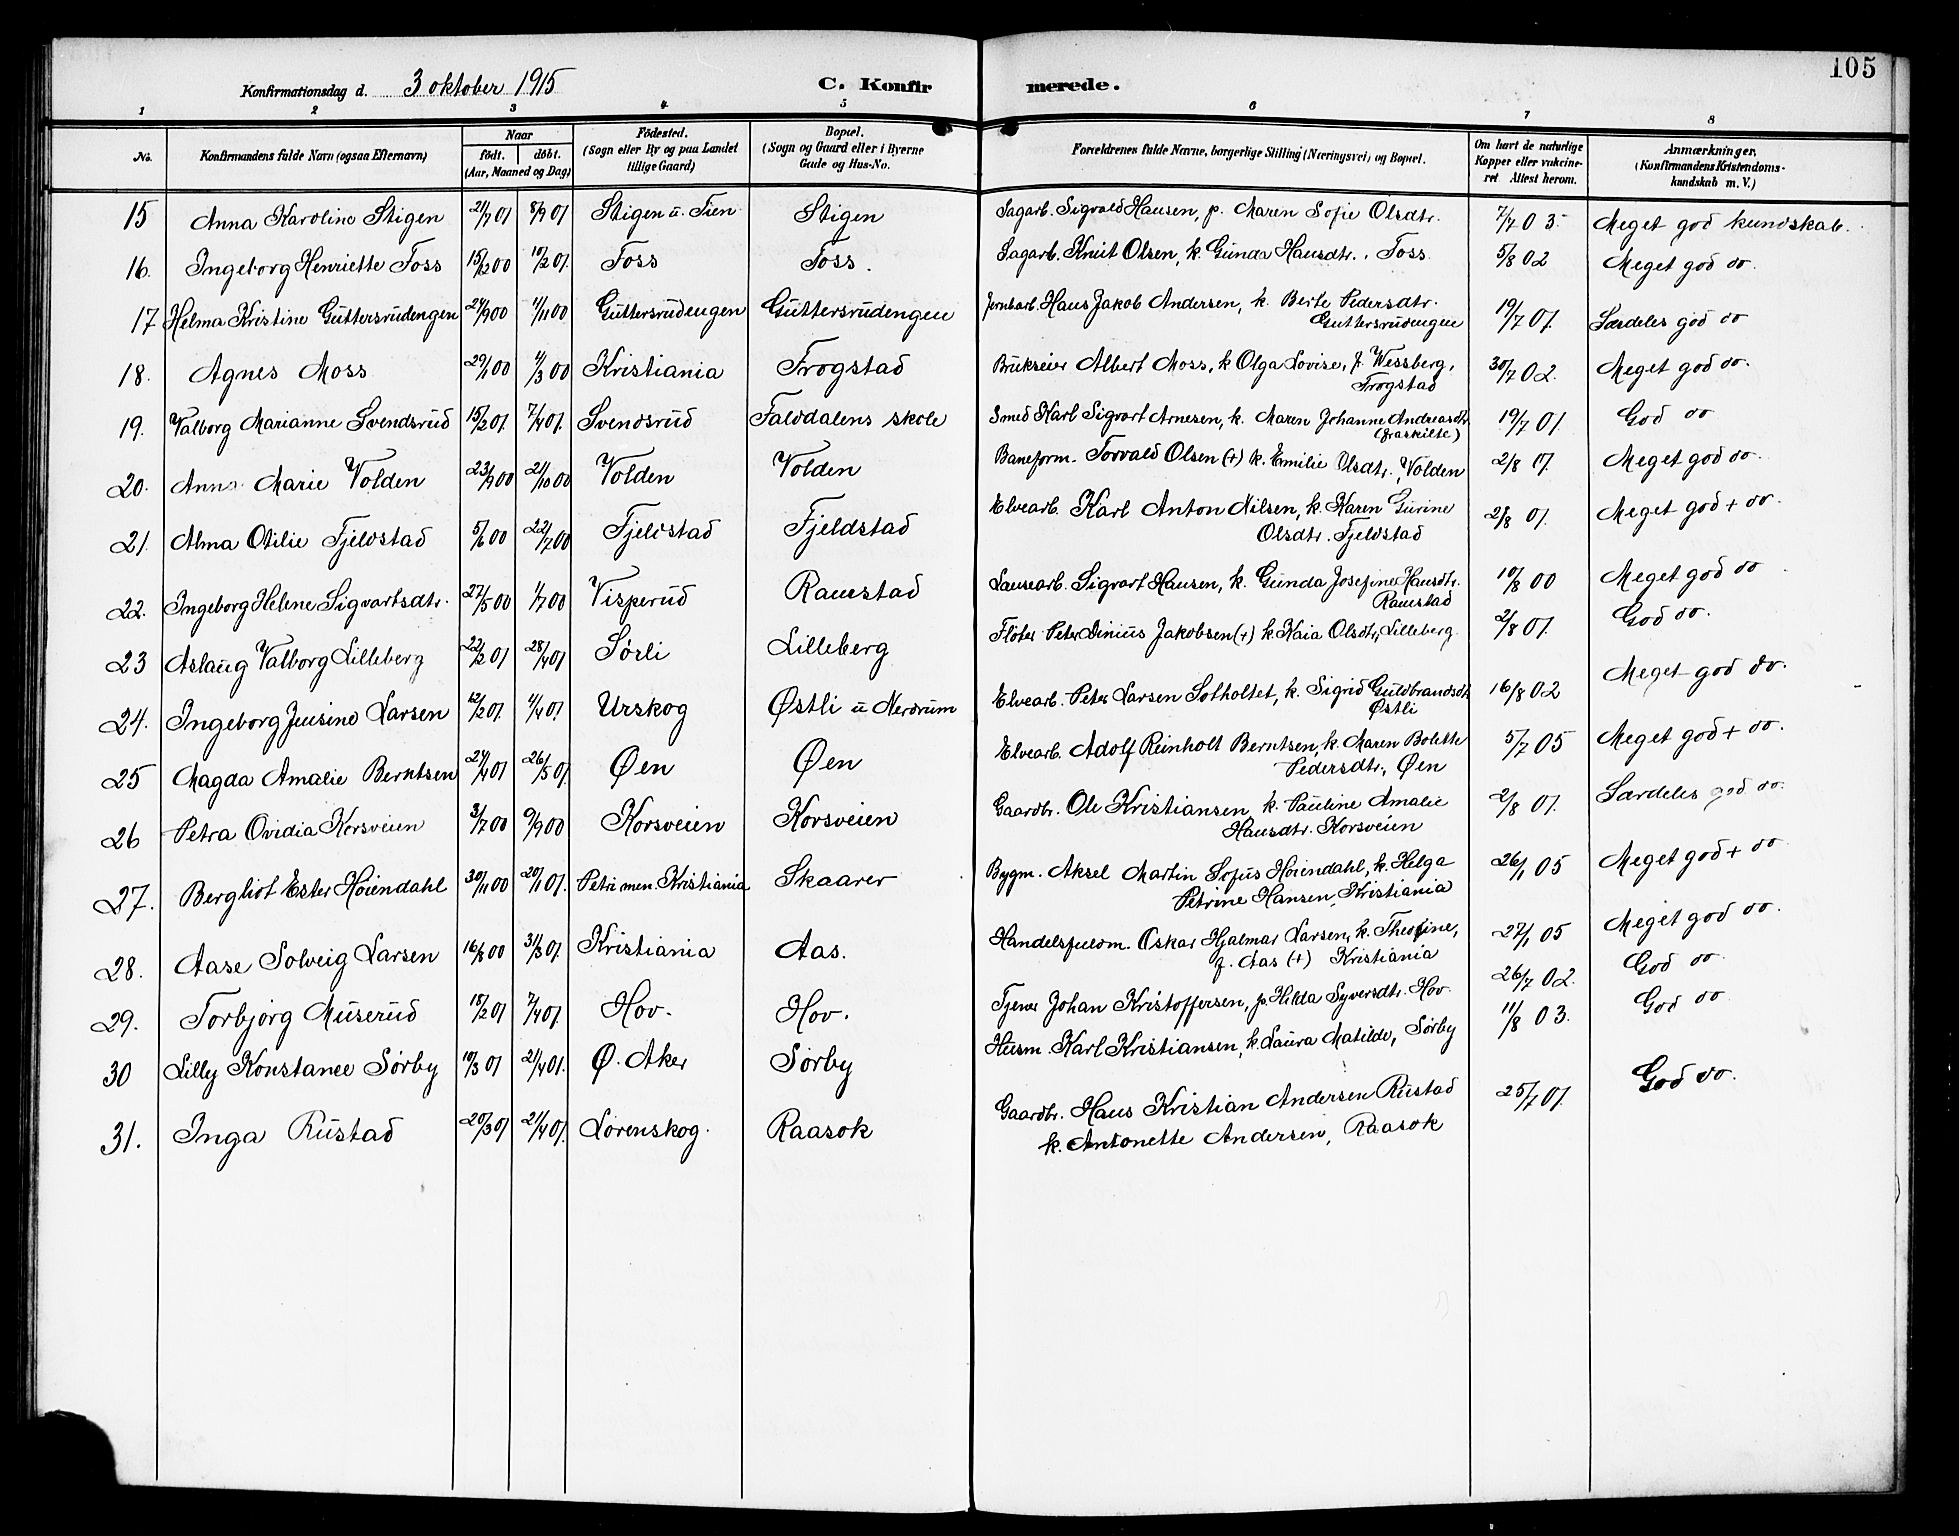 105
Konfirmationsdag d. 3 oktober 1915 C. Konfirmerede.
1 2 3 4 5 6 7 8
No. Konfirmandens fulde Navn (ogsaa Efternavn) Naar født. døbt. (Aar, Maaned og Dag) Fødested. (Sogn eller By og paa Landet tillige Gaard) Bopæl. (Sogn og Gaard eller i Byerne Gade og Hus-No. Forældrenes fulde Navne, borgerlige Stilling (Næringsvei) og Bopæl. Om havt de naturlige Kopper eller vakcineret Attest herom. Anmærkninger, (Konfirmandens Kristendomskundskab m. V.)
15 Anna Karoline Stigen 21/7 01 8/9 01 Stigen u. Tien Stigen Sagarb. Sigvald Hansen, p. Maren Sofie Olsdtr. 7/7 03 Meget god kundskab.
16. Ingeborg Henriette Foss 15/12 00 10/2 01. Foss Foss. Sagarb. Knut Olsen, k. Gunda Hansdtr., Foss 5/8 02 Meget god do.
17 Helma Kristine Guttersrudengen 24/9 00 1/11 00 Guttersrudengen Guttersrudengen Jernbarb. Hans Jakob Andersen, k. Berte Pedersdtr. 19/7 01. Særdeles god do
Guttersrudengen
18. Agnes Moss 29/1 00 4/3 00 Kristiania Frogstad Brukseier Albert Moss, k Olga Lovise, f. Wessberg, 30/7 02. Meget god do.
Frogstad
19. Valborg Marianne Svendsrud 15/2 01. 7/4 01. Svendsrud Faldalens skole Smed Karl Sigvart Arnesen, k. Maren Johanne Andreasdtr. 19/7 01. God do
(fraskilte)
20. Anna Marie Volden 23/9 00 21/10 00 Volden Volden Baneform. Torvald Olsen (+) k. Emilie Olsdtr., Volden 2/8 17. Meget god do.
21. Alma Otilie Fjeldstad 5/6 00 22/7 00 Fjeldstad Fjeldstad Elvearb. Karl Anton Nilsen, k. Karen Gurine 2/8 01. Meget god + do.
Olsdtr. Fjeldstad
22. Ingeborg Helene Sigvartsdtr. 27/5 00 1/7 00 Visperud Ramstad Lausearb. Sigvart Hansen, k. Gunda Josefine Hansdtr. 10/8 00 Meget god do
Ramstad
23 Aslaug Valborg Lilleberg 22/2 01 28/4 01 Sørli Lilleberg Fløter Peter Linius Jakobsen (+) k Kaia Olsdtr, Lilleberg 2/8 01. God do.
24. Ingeborg Jensine Larsen 12/2 01. 4/4 01 Urskog Østli u Nerdrum Elvearb. Peter Larsen Sotholtet, k. Sigrid Guldbrandsdtr. 16/8 02 Meget god do.
Østli
25 Magda Amalie Berntsen 24/4 01 26/5 01. Øen Øen Elvearb. Adolf Reinholt Berntsen, k. Maren Bolette 5/7 05 Meget god + do.
Pedersdtr., Øen
26 Petra Ovidia Korsveien 3/7 00 9/9 00 Korsveien Korsveien Gaardbr. Ole Kristiansen, k. Pauline Amalie 2/8 01. Særdeles god do.
Hansdtr. Korsveien
27. Bergliot Ester Høiendahl 30/11 00 20/1 01. Petri men. Kristiania Skaarer Bygm. Aksel Martin Sofus Høiendahl, k. Helga 26/1 05 Meget god + do
Petrine Hansen, Kristiania
28. Aase Solveig Larsen 16/8 00 31/3 01. Kristiania Aas. Handelsfuldm. Oskar Hjalmar Larsen, k. Theoline, 27/1 05 Meget god do.
f. Aas (+) Kristiania
29. Torbjørg Muserud 18/2 01 7/4 01. Hov. Hov. Tjener Johan Kristoffersen, p. Hilda Syversdtr. Hov. 26/7 02. God do.
30 Lilly Konstance Sørby 10/3 01 21/4 01. Ø. Aker Sørby Husm. Karl Kristiansen, k. Laura Matilde, Sørby 11/8 03. God do
31. Inga Rustad 20/3 01 21/4 01. Lørenskog. Raasok Gaardbr. Hans Kristian Andersen Rustad 25/7 01. God do.
k. Antonette Andersen, Raasok